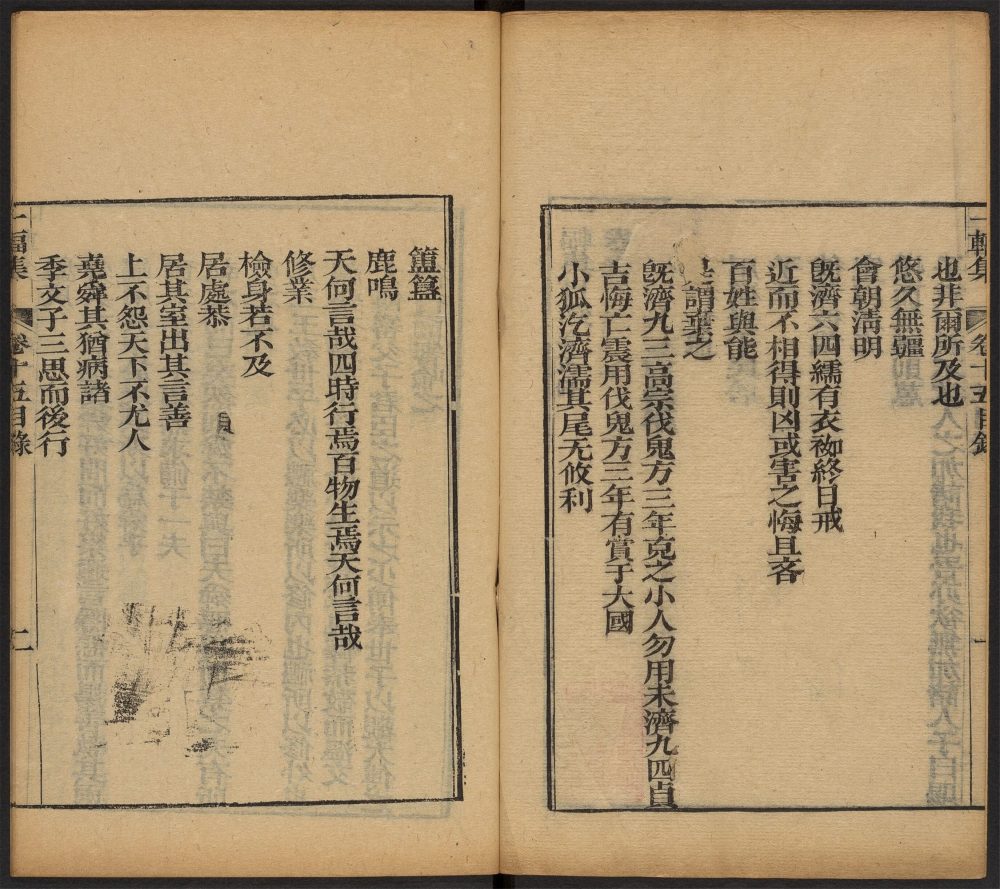 也非爾所及也
悠久無疆
會朝淸明
旣濟六四繻有衣袽終日戒
近而不相得則凶或害之悔且吝
百姓與能
是謂棄之
旣濟九三高宗伐鬼方三年克之小人勿用未濟九四貞
吉悔亡震用伐鬼方三年有賞于大國
小狐汔濟濡其尾无攸利
卷十五目錄
一
簠簋
鹿鳴
天何言哉四時行焉百物生焉天何言哉
修業
檢身若不及
居處恭
居其室出其言善
上不怨天下不尤人
堯舜其猶病諸
季文子三思而後行
卷十五目錄
二